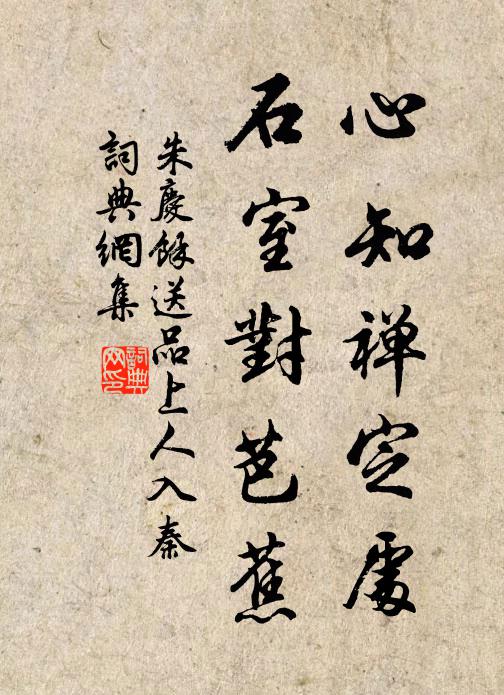 心知禅定處
石室對芭蕉
朱慶餘送品上人入秦
詞典網集
詞典網印